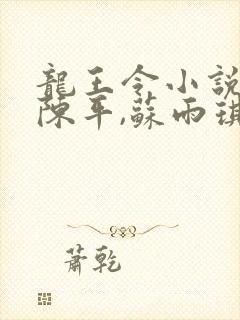 龍王令小説
陳平,蘇雨琪
蕭乾